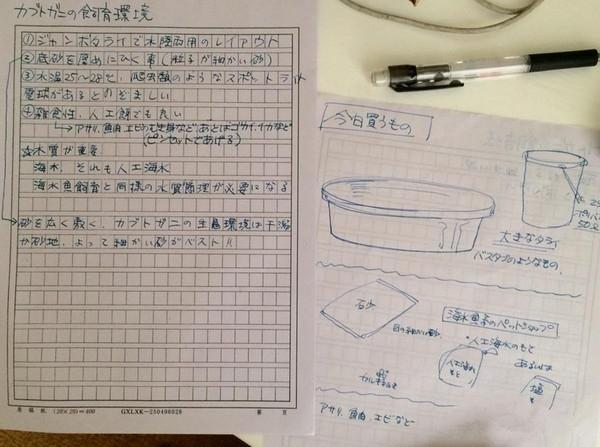 カブトガニの飼育環境
①ジャンボタライで水陸両用のレイアウト
②底砂を厚めにひく事(粒子が細かい砂)
③水温25〜28℃、爬虫類のようなスポットライト
電球があるとのぞましい
④雑食性、人工餌でも良い
→アサリ、魚肉、エビのむき身などあとはゴカイ、イカなど
(ピンセットであげる)
☆水質が重要
海水、それも人工海水
海水魚飼育と同様の水質管理が必要になる
砂を広く敷く、カブトガニの生息環境は干潟
か砂地、よって細かい砂がベスト!!
原稿紙 (20×20)=400 GXLXK-250498028 第 頁
今日買うもの
大きなタライ
バスタブのようなもの、
石少
目の細かい砂、
海水魚系のペットショップ
・人工海水のもと
人工海水のもと
あるいは
塩
カルキぬき
アサリ、魚肉、エビなど